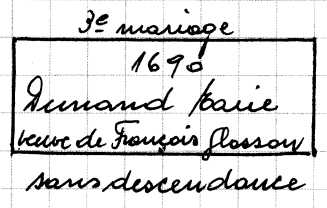 3e mariage
1690
Dunand Marie
veuve de François Glasson
sans descendance